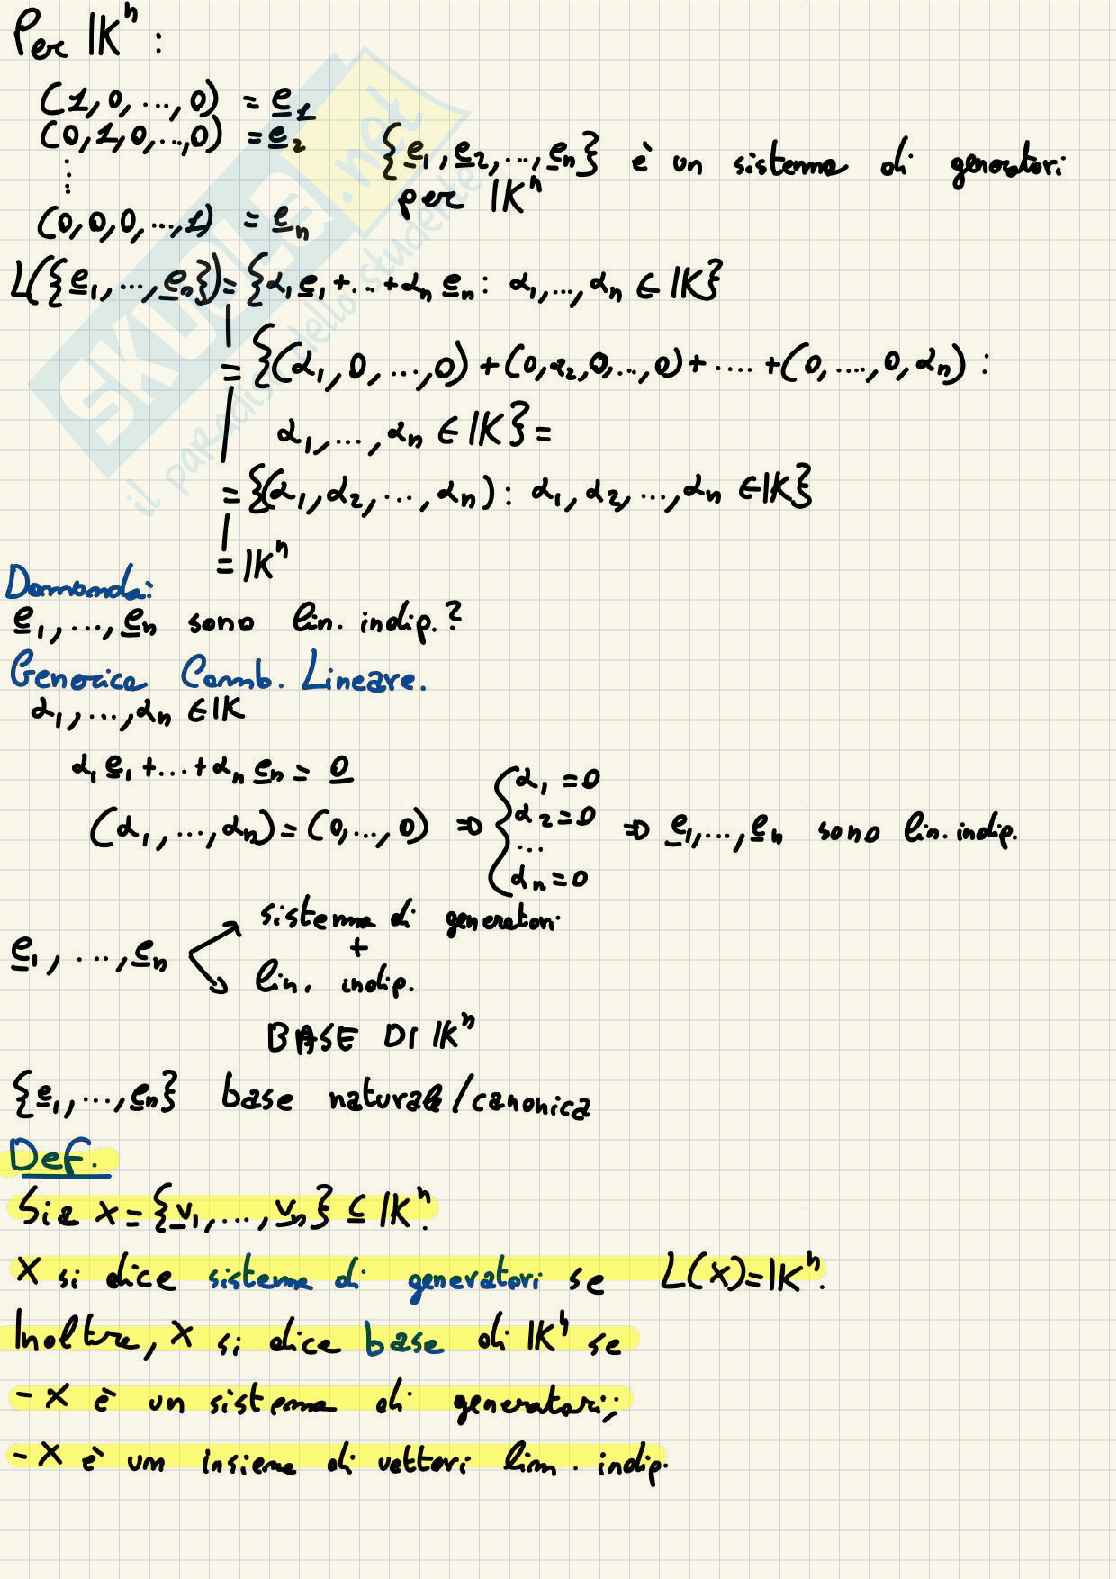 Per 𝕂ⁿ :
(1,0,...,0) = e̲₁
(0,1,0,...,0) = e̲₂
⋮
{e̲₁, e̲₂, ..., e̲ₙ} è un sistema di generatori
per 𝕂ⁿ
(0,0,0,...,1) = e̲ₙ
L({e̲₁, ..., e̲ₙ}) = {α₁e̲₁ + ... + αₙe̲ₙ : α₁, ..., αₙ ∈ 𝕂}
= {(α₁,0,...,0) + (0,α₂,0,...,0) + .... + (0,...,0,αₙ) :
α₁, ..., αₙ ∈ 𝕂} =
= {(α₁, α₂, ..., αₙ) : α₁, α₂, ..., αₙ ∈ 𝕂}
= 𝕂ⁿ
Domanda:
e̲₁, ..., e̲ₙ sono lin. indip.?
Generica Comb. Lineare.
α₁, ..., αₙ ∈ 𝕂
α₁e̲₁ + ... + αₙe̲ₙ = 0̲
(α₁, ..., αₙ) = (0,...,0) ⇒ { α₁ = 0
α₂ = 0
...
αₙ = 0
⇒ e̲₁, ..., e̲ₙ sono lin. indip.
sistema di generatori
+
e̲₁, ..., e̲ₙ
lin. indip.
BASE DI 𝕂ⁿ
{e̲₁, ..., e̲ₙ} base naturale/canonica
Def.
Sia X = {v̲₁, ..., v̲ₙ} ⊆ 𝕂ⁿ.
X si dice sistema di generatori se L(X) = 𝕂ⁿ.
Inoltre, X si dice base di 𝕂ⁿ se
- X è un sistema di generatori;
- X è um insieme di vettori lim. indip.
SKUOLA.net
il paradiso dello studente